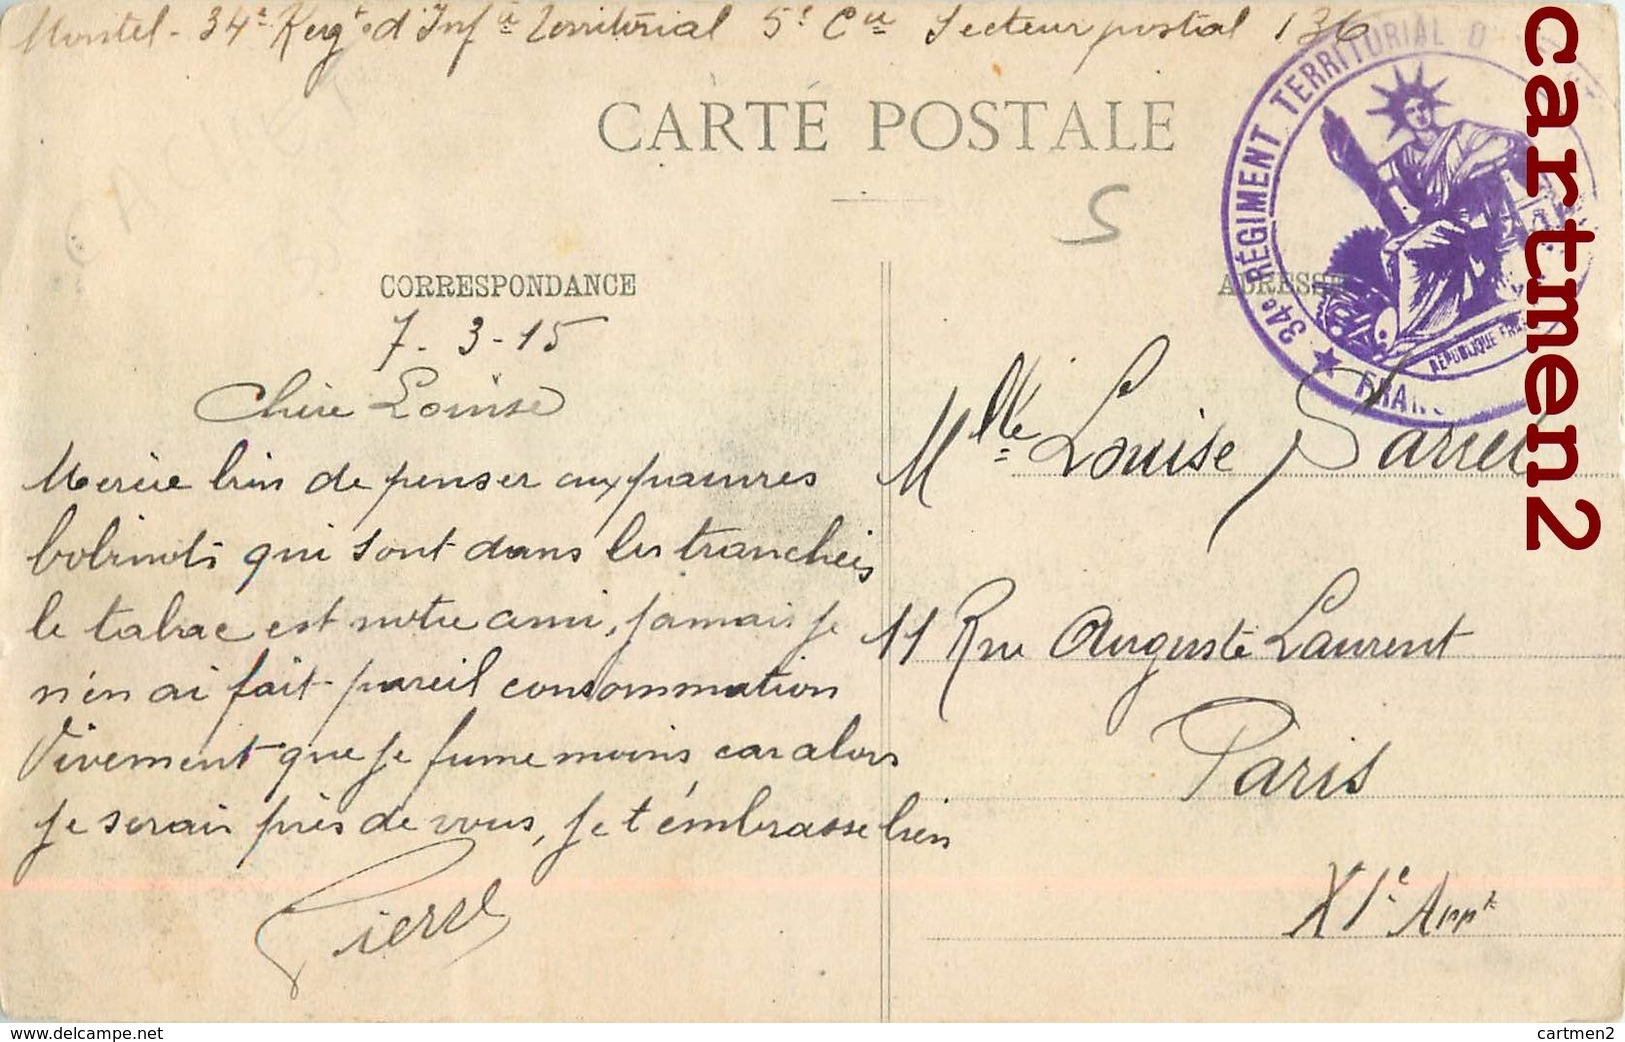 Montel - 34e Regt d'Infie Territorial 5e Cie Secteur postal 136
CARTE POSTALE
S
CORRESPONDANCE
ADRESSE
34e RÉGIMENT TERRITORIAL D
RÉPUBLIQUE FRA
FRAN
7-3-15
Chère Louise
Merci bien de penser aux pauvres
bobinots qui sont dans les tranchées
le tabac est notre ami, jamais je
n'en ai fait pareil consommation
Vivement que je fume moins car alors
je serais près de vous, je t'embrasse bien
Pierre
Mlle Louise Sarrel
11 Rue Auguste Laurent
Paris
XIe Arrt
cartmen2
www.delcampe.net
cartmen2